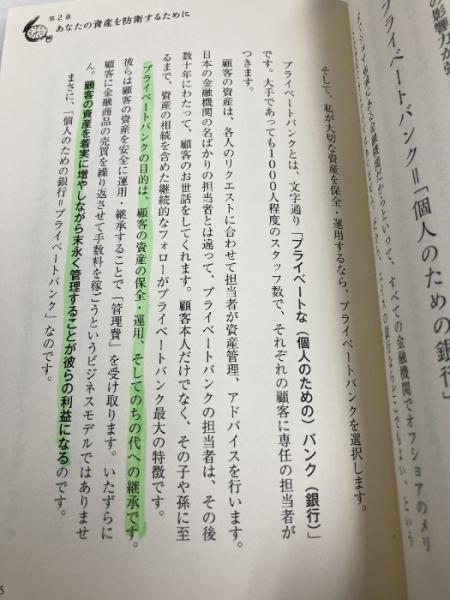 の影響力が強
プライベートバンク=「個人のための銀行」
金融機関だからといって、すべての金融機関でオフショアのメリ
銀行ならどこでもよい、という
第2章
あなたの資産を防衛するために
そして、私が大切な資産を保全・運用するなら、プライベートバンクを選択します。
プライベートバンクとは、文字通り「プライベートな(個人のための)バンク(銀行)」
です。大手であっても1000人程度のスタッフ数で、それぞれの顧客に専任の担当者が
つきます。
顧客の資産は、各人のリクエストに合わせて担当者が資産管理、アドバイスを行います。
日本の金融機関の名ばかりの担当者とは違って、プライベートバンクの担当者は、その後
数十年にわたって、顧客のお世話をしてくれます。顧客本人だけでなく、その子や孫に至
るまで、資産の相続を含めた継続的なフォローがプライベートバンク最大の特徴です。
プライベートバンクの目的は、顧客の資産の保全・運用、そしてのちの代への継承です。
彼らは顧客の資産を安全に運用・継承することで「管理費」を受け取ります。いたずらに
顧客に金融商品の売買を繰り返させて手数料を稼ごうというビジネスモデルではありませ
ん。顧客の資産を着実に増やしながら末永く管理することが彼らの利益になるのです。
まさに、「個人のための銀行=プライベートバンク」なのです。
5